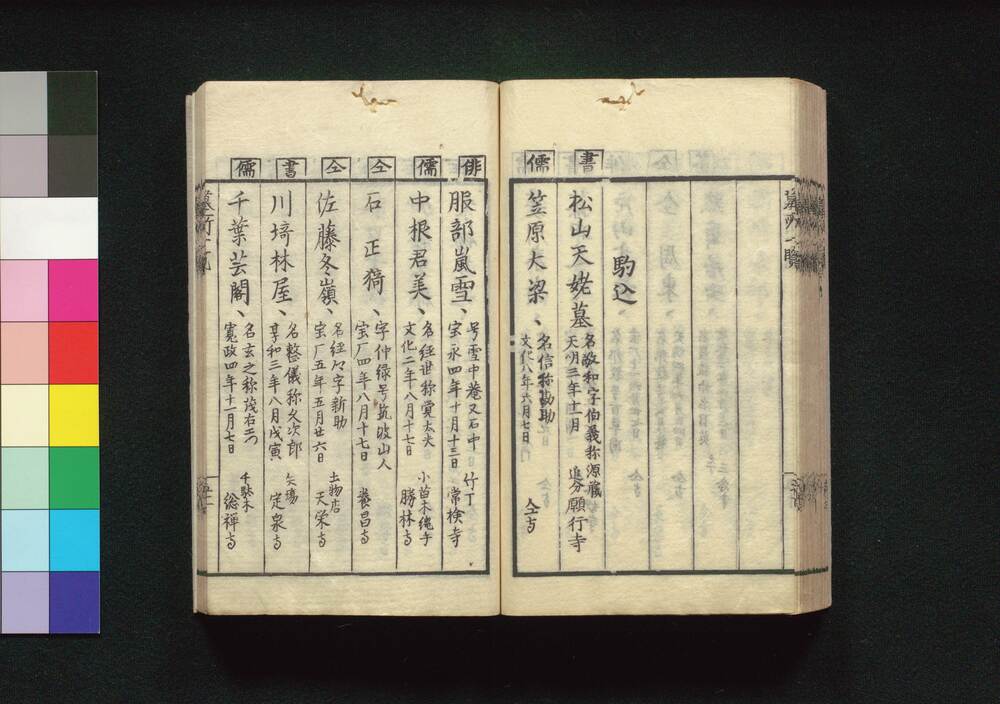 駒込
書
松山天姥墓
名敬和字伯義称源蔵
天明三年十一月
追分願行寺
儒
笠原大梁、
名信称勘助
文化八年六月七日
仝寺
俳
服部嵐雪、
号雪中菴又石中
宝永四年十月十三日
竹丁
常検寺
儒
中根君美、
名経世称覚太夫
文化二年八月十七日
小苗木縄手
勝林寺
仝
石正猗、
字仲緑号筑波山人
宝厂四年八月十七日
養昌寺
仝
佐藤冬嶺、
名経字新助
宝厂五年五月廿六日
土物店
天栄寺
書
川埼林屋、
名整儀称久次郎
享和三年八月戊寅
定泉寺
儒
千葉芸閣、
名玄之称茂右エ門
寛政四年十一月七日
千駄木
総禅寺